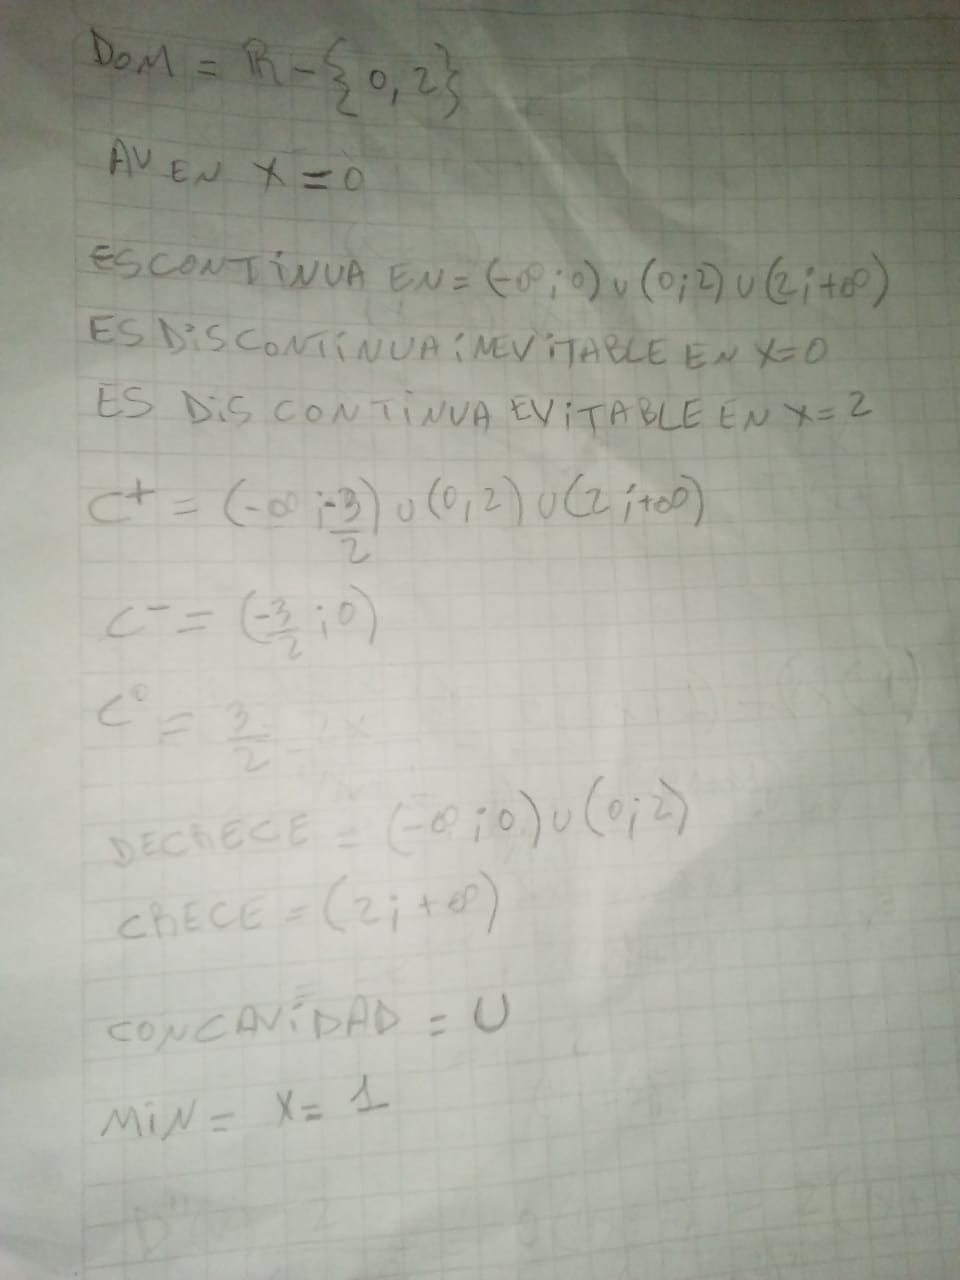 DOM = ℝ - {0, 2}
AV EN X = 0
ES CONTINUA EN = (-∞ ; 0) ∪ (0 ; 2) ∪ (2 ; +∞)
ES DISCONTINUA INEVITABLE EN X=0
ES DISCONTINUA EVITABLE EN X=2
C⁺ = (-∞ ; -3/2) ∪ (0, 2) ∪ (2 ; +∞)
C⁻ = (-3/2 ; 0)
C⁰ = 3/2
DECRECE = (-∞ ; 0) ∪ (0 ; 2)
CRECE = (2 ; +∞)
CONCAVIDAD = U
MIN = X = 1